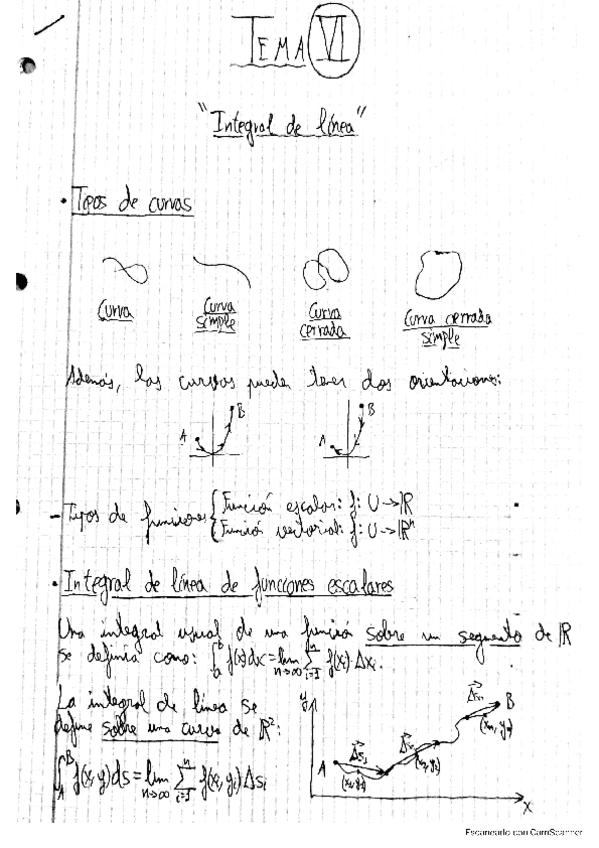 TEMA VI
"Integral de línea"
• Tipos de curvas
Curva
Curva simple
Curva cerrada
Curva cerrada simple
Además, las curvas pueden tener dos orientaciones:
A B A B
- Tipos de funciones { Función escalar: f: U→ℝ
Función vectorial: f: U→ℝⁿ
• Integral de línea de funciones escalares
Una integral usual de una función sobre un segmento de ℝ
se definía como: ∫ₐᵇ f(x)dx = lim n→∞ Σᵢ₌₁ⁿ f(xᵢ)·Δxᵢ.
La integral de línea se
define sobre una curva de ℝ²:
∫_A^B f(x,y)ds = lim n→∞ Σᵢ₌₁ⁿ f(xᵢ,yᵢ)·Δsᵢ
y
A
B
(xᵢ,yᵢ)
(xₙ,yₙ)
x
Escaneado con CamScanner